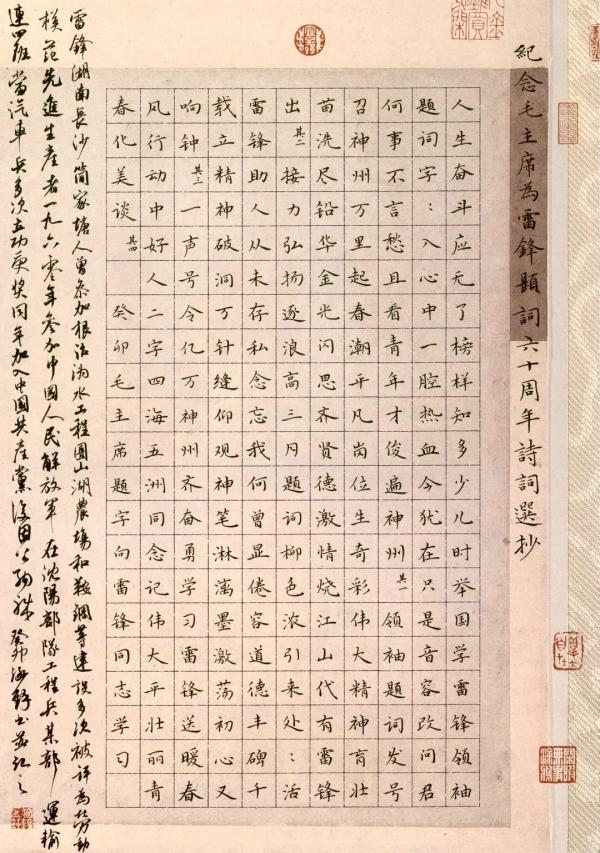 紀念毛主席為雷鋒題詞六十周年詩詞選抄
人生奋斗应无了榜样知多少儿时举国学雷锋领袖
题词字：入心中一腔热血今犹在只是音容改问君
何事不言愁且看青年才俊遍神州其一领袖题词发号
召神州万里起春潮平凡岗位生奇彩伟大精神育壮
苗洗尽铅华金光闪思齐贤德激情烧江山代有雷锋
出其二接力弘扬逐浪高三月题词柳色浓引来处：活
雷锋助人从未存私念忘我何曾显倦容道德丰碑千
载立精神破洞万针缝仰观神笔淋漓墨激荡初心又
响钟其三一声号令亿万神州齐奋勇学习雷锋送暖春
风行动中好人二字四海五洲同念记伟大平壮丽青
春化美谈其四癸卯毛主席题字向雷锋同志学习
雷鋒湖南長沙简家塘人曾参加根治沩水工程團山湖農場和鞍鋼等建設多次被评為劳動
模范先進生產者一九六零年参加中國人民解放軍在沈陽部隊工程兵某部運輸
連四班當汽車兵多次立功受奖同年加入中國共產黨後因公殉職癸卯書並記之